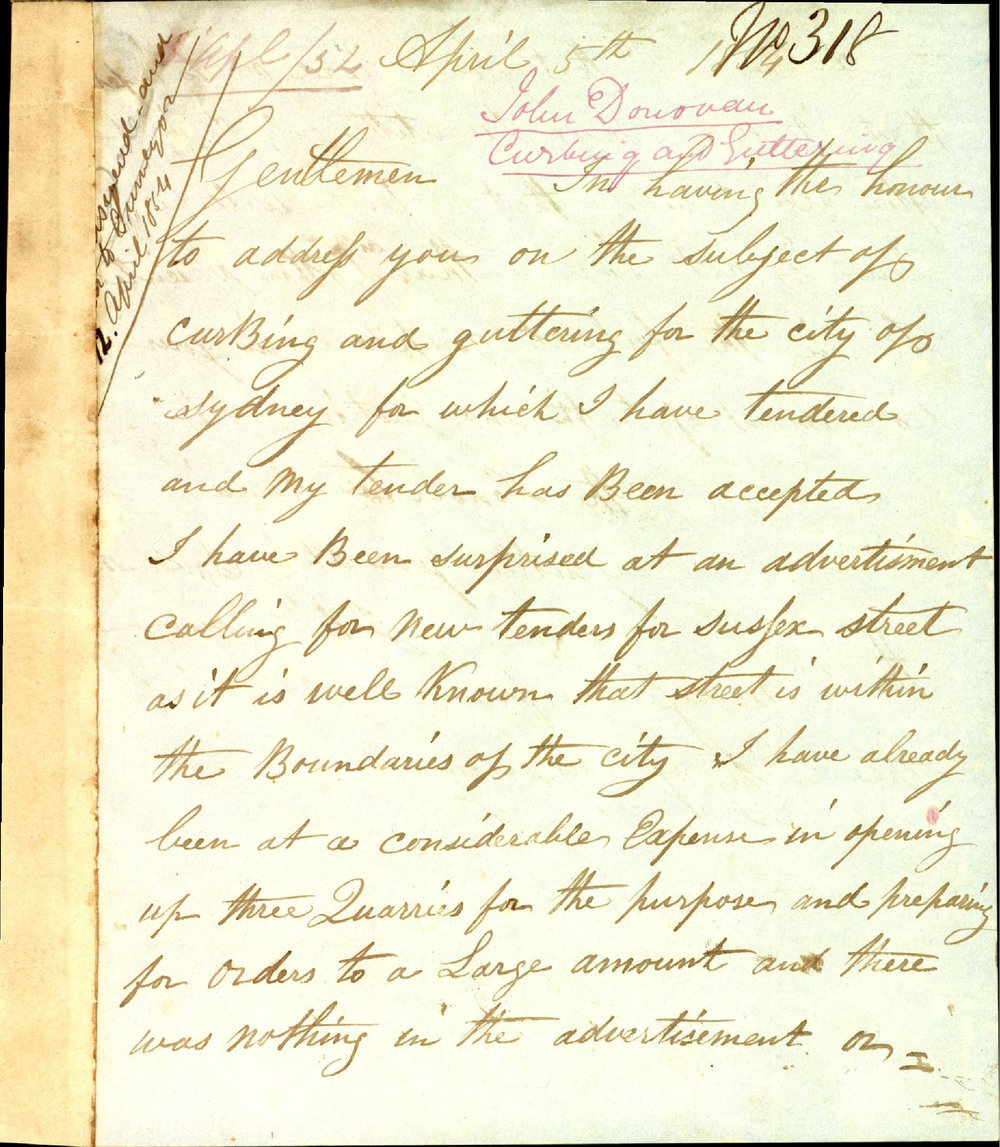 /52 April 5th
No 318
John Donovan
Curbing and Guttering
and
to Surveyor
12. April 1854
Gentlemen In having the honour
to address you on the subject of
curBing and guttering for the city of
sydney for which I have tendered
and My tender has Been accepted
I have Been surprised at an advertisment
calling for New tenders for sussex street
as it is well Known that street is within
the Boundaries of the city I have already
been at a considerable Expense in opening
up three Quarries for the purpose and preparing
for orders to a Large amount and there
was nothing in the advertisement or